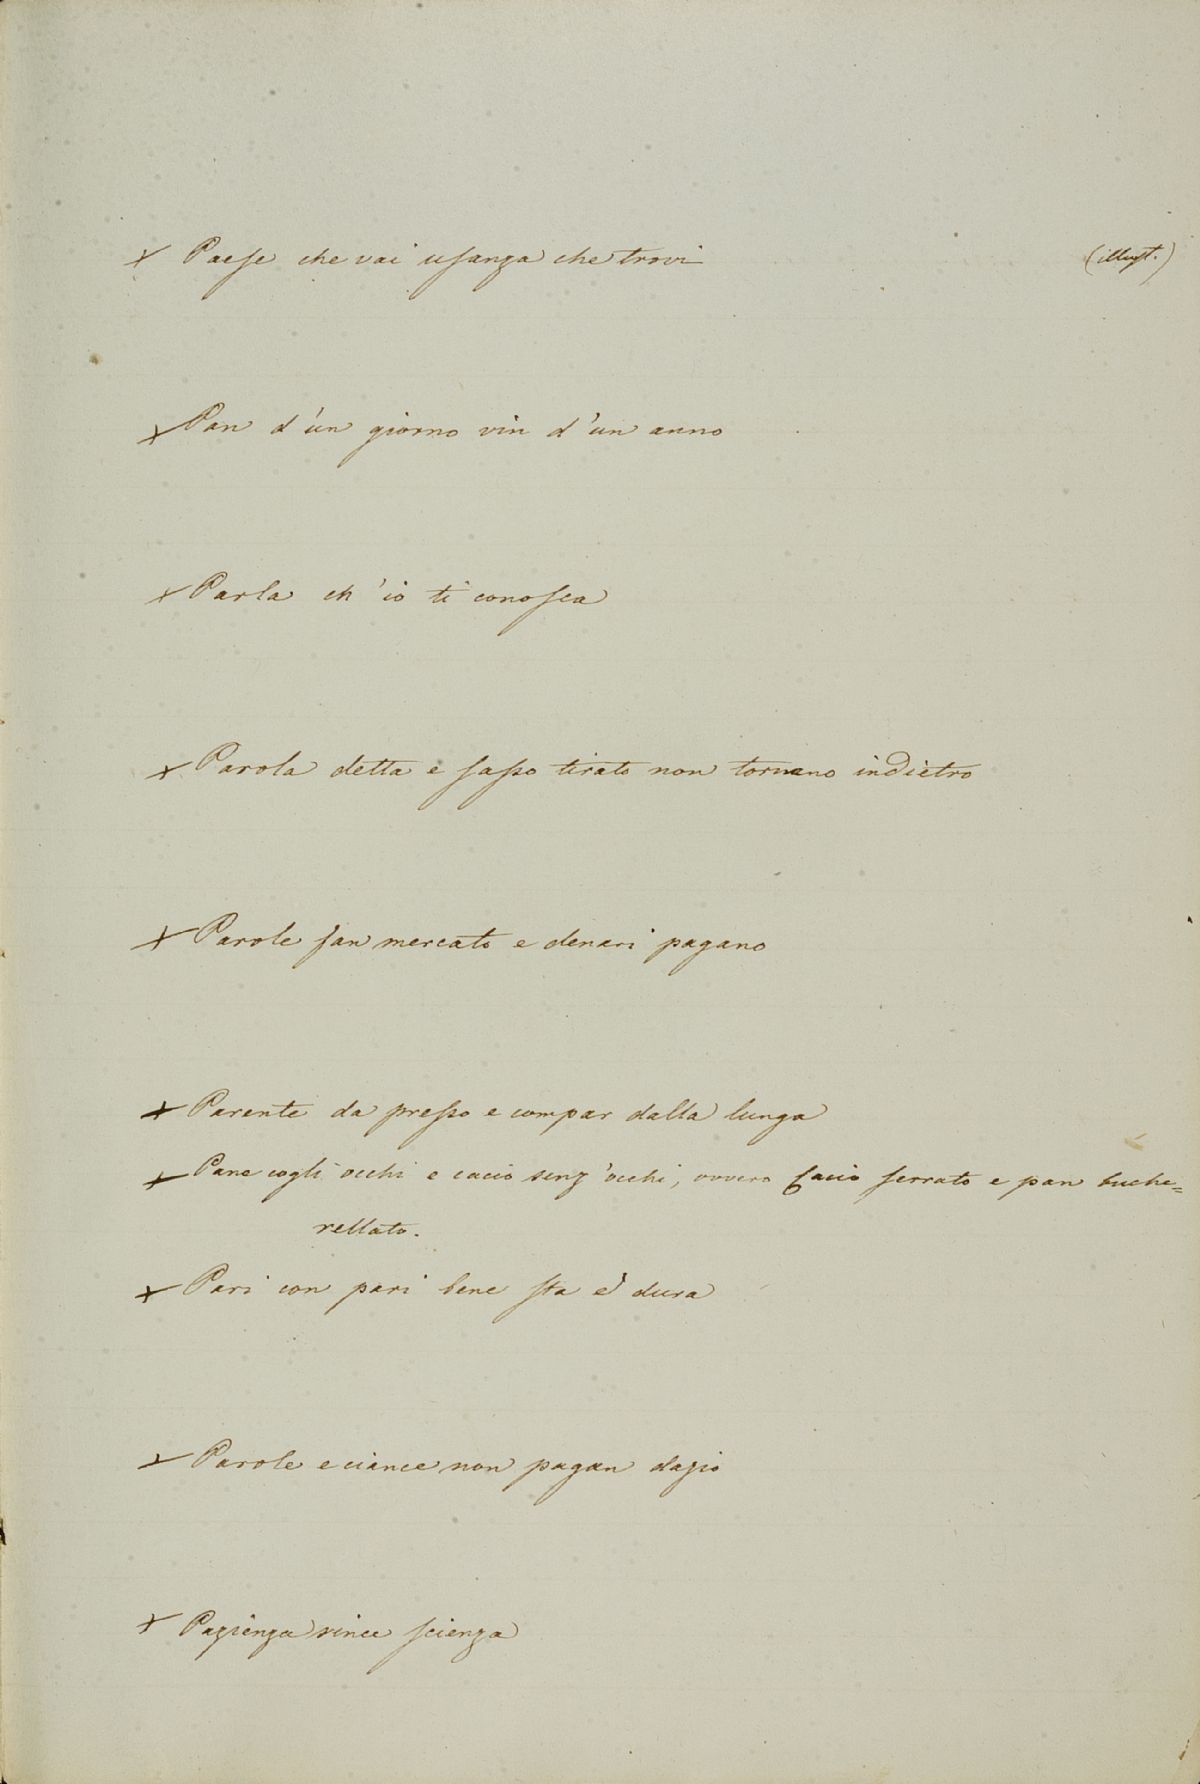 × Paese che vai usanza che trovi (illust.)
× Pan d'un giorno vin d'un anno
× Parla ch'io ti conosca
× Parola detta e sasso tirato non tornano indietro
× Parole fan mercato e denari pagano
× Parente da presso e compar dalla lunga
× Pane cogli occhi e cacio senz'occhi, ovvero Cacio serrato e pan buche=
rellato.
× Pari con pari bene sta e dura
× Parole e ciance non pagan dazio
× Pazienza vince scienza